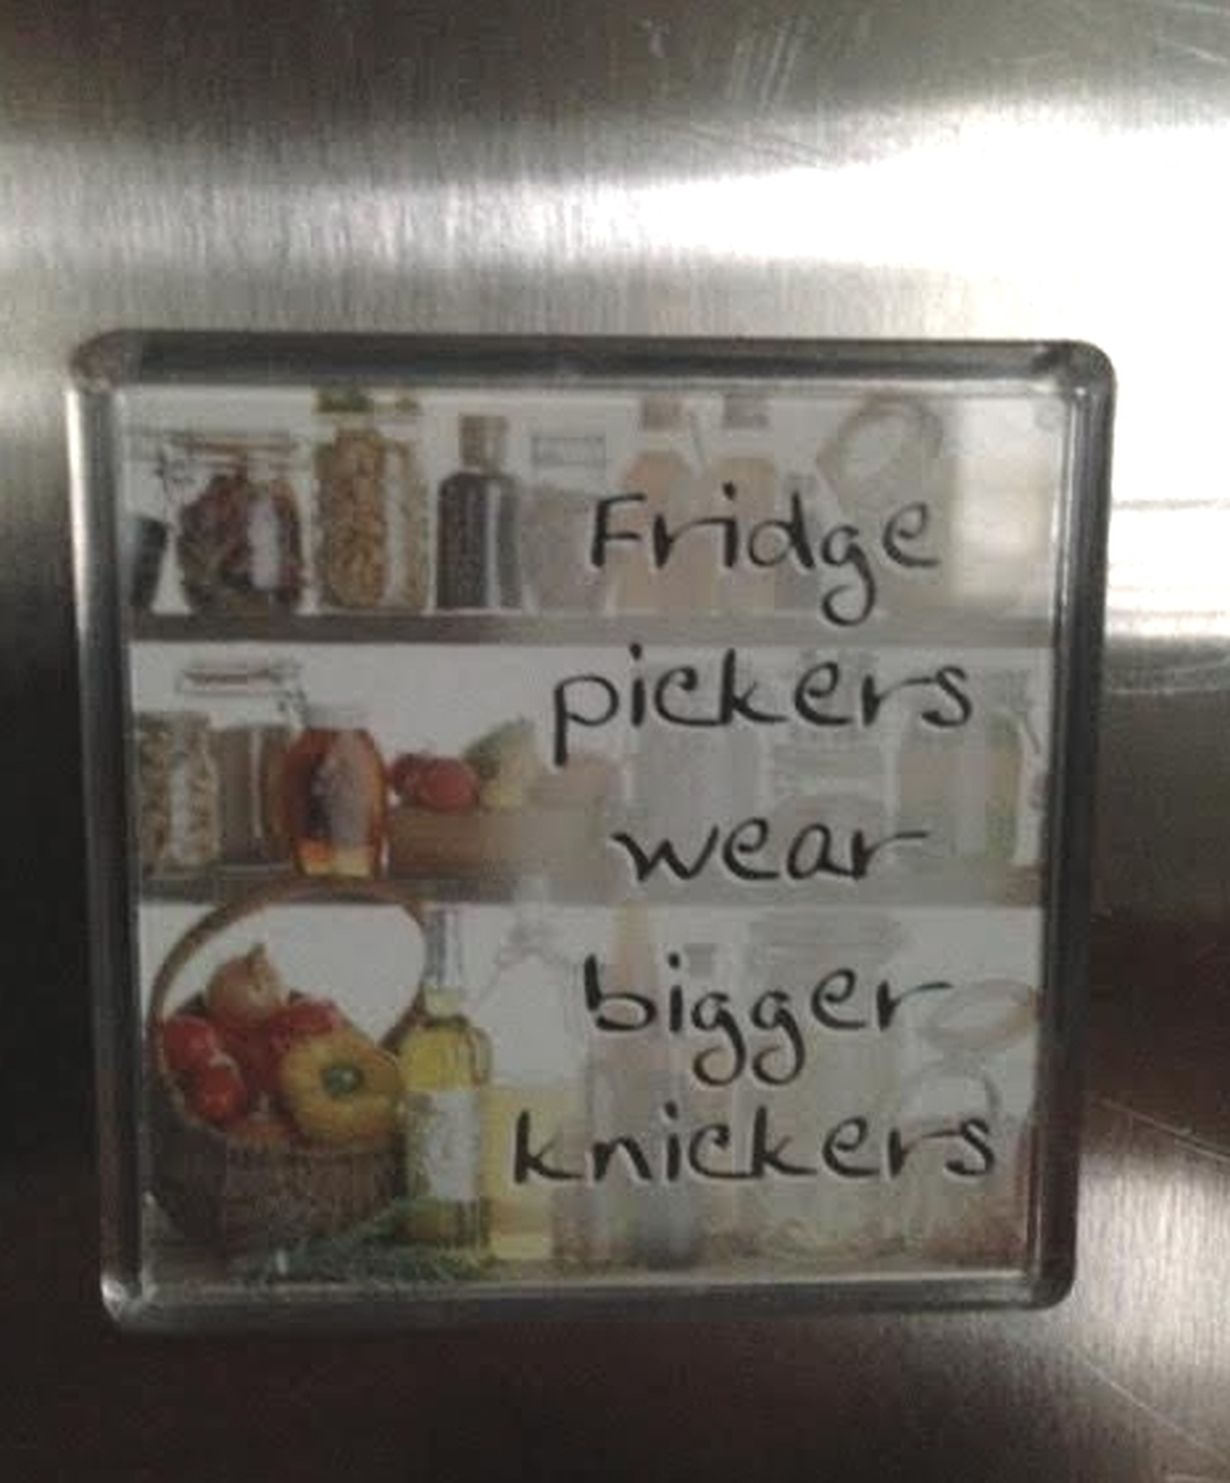 Fridge
pickers
wear
bigger
knickers